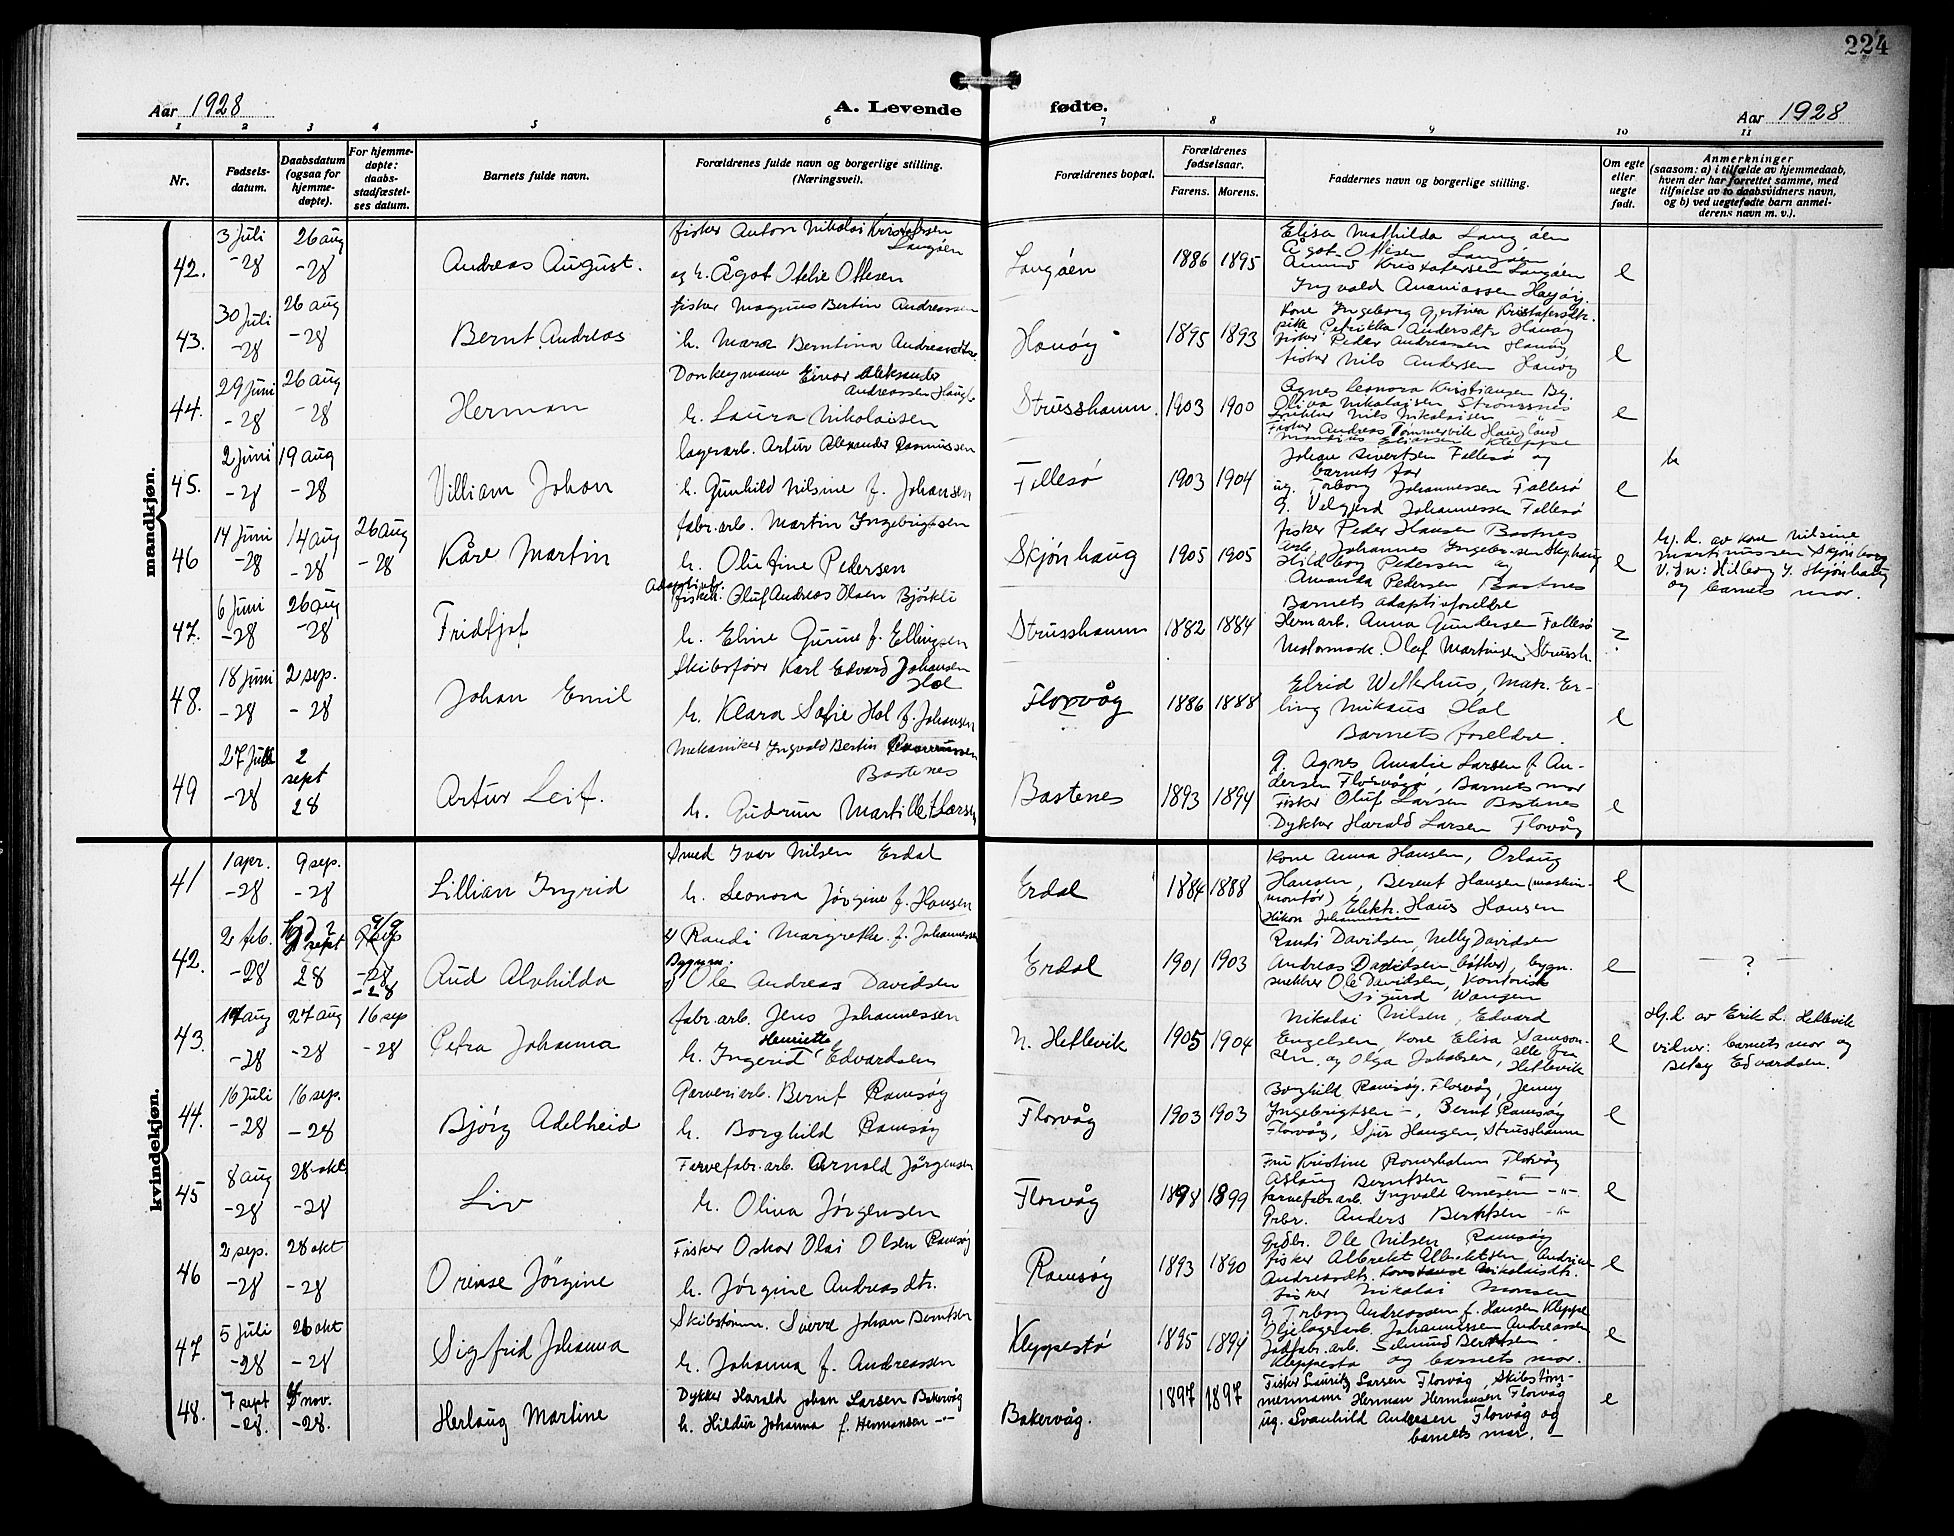 224
Aar 1928
A. Levende fødte.
Aar 1928
1 2 3 4 5 6 7 8 9 10 11
Nr.
Fødsels-
datum.
Daabsdatum
(ogsaa for
hjemme-
døpte).
For hjemme-
døpte:
daabs-
stadfæstel-
ses datum.
Barnets fulde navn.
Forældrenes fulde navn og borgerlige stilling.
(Næringsvei).
Forældrenes bopæl.
Forældrenes
fødselsaar.
Farens. Morens.
Faddernes navn og borgerlige stilling.
Om egte
eller
uegte
født.
Anmerkninger
(saasom: a) i tilfælde av hjemmedaab,
hvem der har forrettet samme, med
tilføielse av to daabsvidners navn,
og b) ved uegtefødte barn anmel-
derens navn m. v.).
mandkjøn.
42. 3 juli -28 26 aug -28 Andreas August.
fisker Anton Nikolai Kristofersen
Langøen
og h. Ågot Otelie Ottesen
Langøen 1886 1895
Elisa Mathilda Langøen
Ågot Ottesen Langøen
Amund Kristofersen Langøen
Ingvald Ananiassen
e
43. 30 juli -28 26 aug -28 Bernt Andreas
fisker Magnus Bertin Andreassen
h. Berntina
Hanøy 1895 1893
Kone Ingeborg Gjertina Kristofersdtr.
pike Petrikka Andersdtr Hanøy
fisker Peder Andreassen Hanøy
fisker Nils Andersen Hanøy
e
44. 29 juni -28 26 aug -28 Herman
Donkeymann Einar Aleksander
Andreassen
h. Laura Nikolaisen
Strusshamn. 1903 1900
Agnes Leonora Kristiansen
Oliva Nikolaisen
Nils Nikolaisen
Fisker Andreas Tømmervik Haugland
Eliassen Kleppe
e
45. 2 juni -28 19 aug -28 Villiam Johan
lagerarb. Artur Alexander Rasmussen
h. Gunhild Nilsine f. Johansen
Follesø 1903 1904
Johan Sivertsen Follesø og
barnets far
ug. Torborg Johannessen Follesø
g. Velgjerd Johannessen Follesø
e
h
46 14 juni -28 14 aug -28 26 aug -28 Kåre Martin
fabr.arb. Martin Ingebrigtsen
h. Olufine Pedersen
Skjønhaug 1905 1905
fisker Peder Hansen Bastnes
arb. Johannes Ingebrigtsen Skjønhaug
Hildborg Pedersen og
Amanda Pedersen Bastnes
e
Hj.d. av kone Nilsine
Martinussen Skjønhaug
V.In: Hilborg I. Skjønhaug
og barnets mor.
47. 6 juni -28 26 aug -28 Fridtjof
Adoptivfor.
fisker: Oluf Andreas Olsen Bjørkli
h. Eline Gurine f. Ellingsen
Strusshamn 1882 1884
Barnets adoptivforeldre
Hermarb. Anna Gundersen Follesø
Motormask. Olaf Martinsen Strussh.
?
48. 18 juni -28 2 sep. -28 Johan Emil
Skibsfører Karl Edvard Johansen
Hol
h. Klara Sofie Hol f. Johansen
Florvåg 1886 1888
Elrid Wellerhus, Mak. Er-
ling Mikaus Hol
Barnets foreldre.
e
49 27 juli -28 2 sept 28 Artur Leif.
Mekaniker Ingvald Bertin
Bastenes
h. Gudrun Martille f. Larsen
Bastenes 1893 1894
g. Agnes Amalie Larsen f. An-
dersen Florvåg, Barnets mor
Fisker Oluf Larsen Bastenes
Dykker Harald Larsen Florvåg
e
kvindekjøn.
41 1 apr. -28 9 sep. -28 Lillian Ingrid
Smed Ivar Nilsen Erdal
h. Leonora Jørgine f. Hansen
Erdal 1884 1888
Kone Anna Hansen, Oslaug
Hansen, Berent Hansen (maskin-
montør) Elektr. Hans Hansen
Håkon Johannessen
e
42. 2 feb. -28 28 9/9 -28 Aud Alvhilda
Randi Margrethe f. Johannessen
Bygnm.
Ole Andreas Davidsen
Erdal 1901 1903
Randi Davidsen, Nelly Davidsen
Andreas Davidsen (bøtker), bygn.
snekker Ole Davidsen, Kontorist
Sigurd Wangen
e
— ? —
43. 17 aug -28 27 aug -28 16 sep -28 Petra Johanna
fabr.arb. Jens Johannessen
Henriette
h. Ingerid Edvardsen
N. Hetlevik 1905 1904
Nikolai Nilsen, Edvard
Engelsen, Kone Elisa Samson-
sen, og Olga Jakobsen, alle fra
Hetlevik
e
Hj.d. av Erik L. Hetlevik
vidner: barnets mor og
Betsy Edvardsen.
44. 16 juli -28 16 sep. -28 Bjørg Adelheid
Garveriarb. Bernt Ramsøy
h. Borghild Ramsøy
Florvåg 1903 1903
Borghild Ramsøy. Florvåg, Jenny
Ingebrigtsen -, Bernt Ramsøy
Florvåg, Sjur Haugen, Strusshamn
e
45 8 aug -28 28 okt -28 Liv
Farvefabr.arb. Arnold Jørgensen
h. Oliva Jørgensen
Florvåg 1898 1899
Fru Kristine Florvåg
Aslaug Berntsen -"-
farvefabr.arb. Ingvald Arnesen -"-
Grbr. Anders Berntsen -"-
e
46 2 sep. -28 28 okt -28 Orense Jørgine
Fisker Oskar Olai Olsen Ramsøy
h. Jørgine Andreasdtr.
Ramsøy 1893 1890
Grdbr. Ole Nilsen Ramsøy
fisker Albrekt Albrektsen, Andrine
Andreasdtr. Konstanse Nikolaisdtr.
fisker Nikolai Monsen
e
47 5 juli -28 26 okt -28 Sigfrid Johanna
Skibstømm. Sverre Johan Berntsen
h. Johanna f. Andreassen
Kleppestø 1895 1894
g. Torborg Andreassen f. Hansen Kleppe
Oljelagerarb. Johannessen Andreassen
Jodfabr.arb. Selmund Berntsen
Kleppestø og barnets mor.
e
48. 7 sept -28. nov. -28. Herlaug Martine
Dykker Harald Johan Larsen Bakervåg
h. Hildur Johanna f. Hermansen -"-
Bakervåg. 1897 1897
Fisker Lauritz Larsen Florvåg, Skibstøm-
mermann Herman Hermansen Florvåg
ug. Svanhild Andersen Florvåg og
barnets mor. -
e